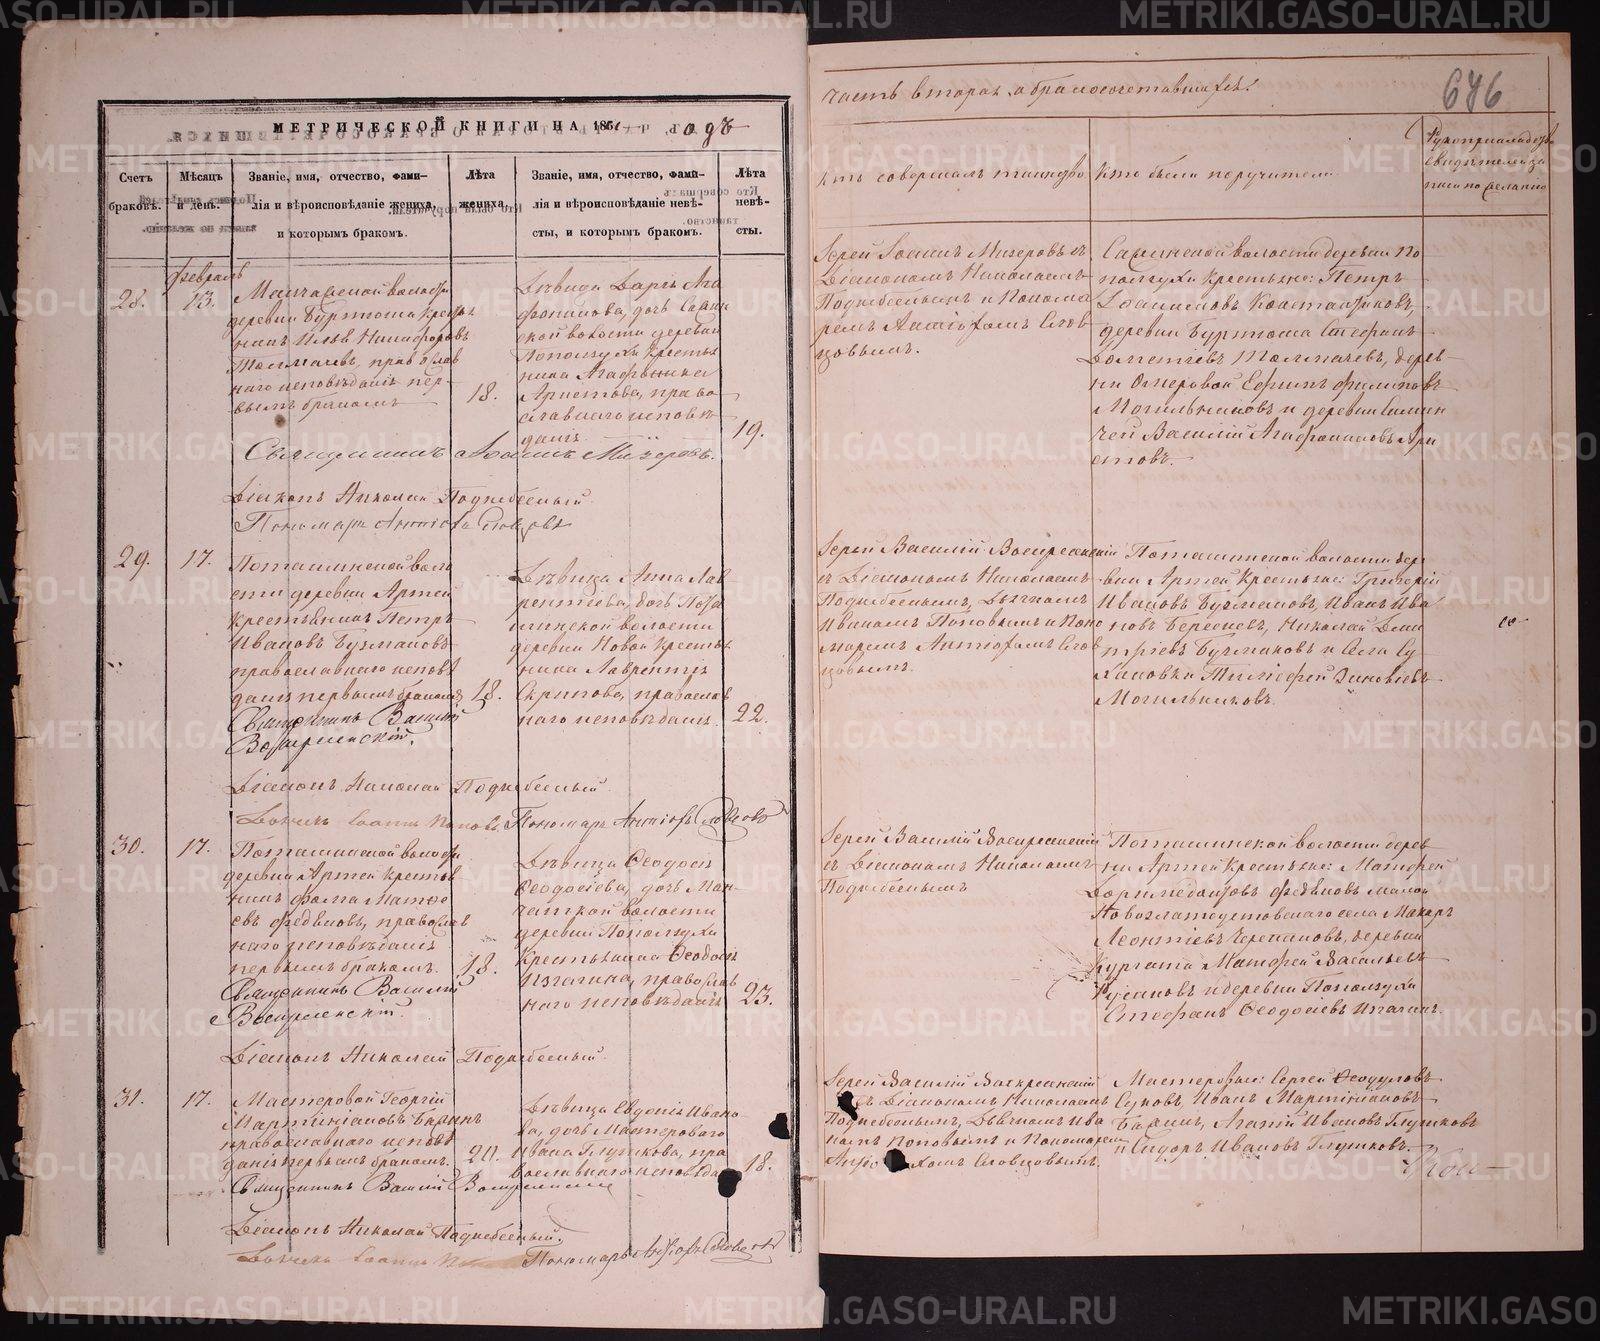 МЕТРИЧЕСКОЙ КНИГИ НА 1851 годъ
Счетъ браковъ.
Мѣсяцъ и день.
Званіе, имя, отчество, фами-
лія и вѣроисповѣданіе жениха,
и которымъ бракомъ.
Лѣта жениха.
Званіе, имя, отчество, фами-
лія и вѣроисповѣданіе невѣ-
сты, и которымъ бракомъ.
Лѣта невѣ-
сты.
Февраль
28.
13.
волости
деревни Буртоша Крестья
нинъ Илья Никифоровъ
Толмачевъ, православ
наго исповѣданія пер-
вымъ бракомъ
18.
Дѣвица Дарья Ага
фоникова, дочь
ской волости деревни
Ползухи Крестья
нина Агафоника
Аристова, право
славнаго исповѣ
данія
19.
Священникъ Іоаннъ Мизеровъ.
Діаконъ Николай Поднебесный
Пономарь Антіохъ Словцовъ
29.
17.
Поташинской воло
сти деревни Артей
Крестьянинъ Петръ
Ивановъ Бузмаковъ
православнаго исповѣ
данія первымъ бракомъ
18.
Дѣвица Анна Лав
рентіева, дочь Пота
шинской волости
деревни Новой Крестья
нина Лаврентія
православ
наго исповѣданія.
22.
Священникъ Василій
Воскресенскій.
Діаконъ Николай Поднебесный
Дьячекъ Іоаннъ Поповъ. Пономарь Антіохъ Словцовъ
30.
17.
Поташинской волости
деревни Артей крестья
нинъ Фома Матѳе
евъ Федѣковъ, православ
наго исповѣданія
первымъ бракомъ.
18.
Дѣвица Ѳеодосія
Ѳеодосіева, дочь Ман-
чажской волости
деревни Ползухи
Крестьянина Ѳеодосія
православ
наго исповѣданія
23.
Священникъ Василій
Воскресенскій.
Діаконъ Николай Поднебесный.
31.
17.
Мастеровой Георгій
Мартиніановъ
православнаго исповѣ
данія первымъ бракомъ.
20.
Дѣвица Евдокія Ивано
ва, дочь Мастероваго
Ивана Глушкова, пра
вославнаго исповѣда
18.
Священникъ Василій Воскресенскій
Діаконъ Николай Поднебесный.
Дьячекъ Іоаннъ
Пономарь Антіохъ Словцовъ
часть вторая о бракосочетавшихся.
646
Кто совершалъ таинство
Кто были поручители
Рукоприкладство
свидѣтелей за
писи по желанію
Іерей Іоаннъ Мизеровъ съ
Діакономъ Николаемъ
Поднебеснымъ и Понома
ремъ Антіохомъ Слов
цовымъ.
волости деревни По
ползухи крестьяне: Петръ
деревни Буртоша Стефанъ
Дометіевъ Толмачевъ, дерев-
ни Омеровой Ефимъ Филиповъ
Могильниковъ и деревни
Василій Агафониковъ Ари
стовъ.
Іерей Василій Воскресенскій
съ Діакономъ Николаемъ
Поднебеснымъ, Дьячкомъ
Иваномъ Поповымъ и Поно
маремъ Антіохомъ Слов
цовымъ.
Поташинской волости дере
вни Артей Крестьяне: Григорій
Ивановъ Бузмаковъ, Иванъ Ива
новъ Николай Дми
тріевъ Бузмаковъ и села Су
хановки Тимоѳей Зиновіевъ
Могильниковъ.
Іерей Василій Воскресенскій
съ Діакономъ Николаемъ
Поднебеснымъ
Поташинской волости дерев
ни Артей Крестьяне: Матѳей
Федѣковъ
Новозлатоустовскаго села Макаръ
Леонтіевъ Черепановъ, деревни
Кургата Матѳей Васильевъ
и деревни Ползухи
Стефанъ Ѳеодосіевъ
Іерей Василій Воскресенскій
съ Діакономъ Николаемъ
Поднебеснымъ, Дьячкомъ Ива
номъ Поповымъ и Пономаремъ
Антіохомъ Словцовымъ.
Мастеровые: Сергей Ѳеодуловъ
Иванъ Мартиніановъ
Ивановъ Глушковъ
и Сидоръ Ивановъ Глушковъ.
METRIKI.GASO-URAL.RU